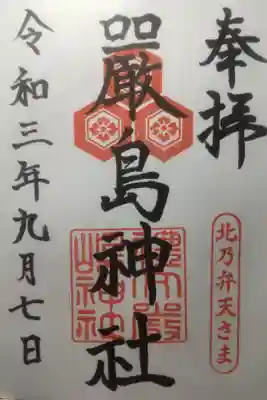 奉拝
北乃弁天さま
嚴島神社
令和三年九月七日